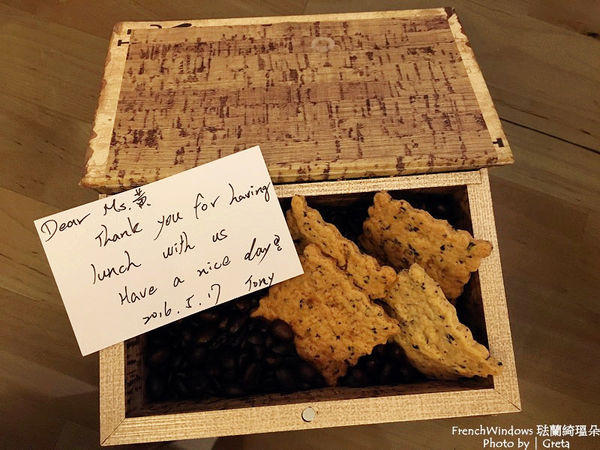 Dear Ms.黃
Thank you for having
lunch with us
Have a nice day!
2016.5.17 Tony
FrenchWindows 琺蘭綺瑥朵
Photo by | Greta